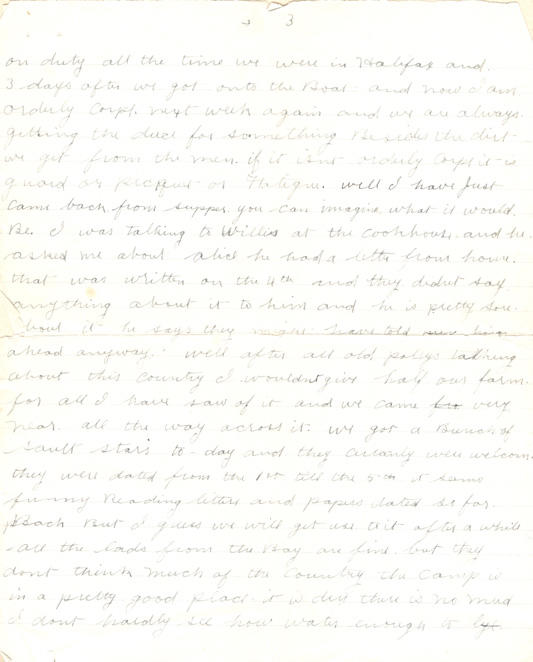 3
on duty all the time we were in Halifax and
3 days after we got onto the Boat. and now I am
orderly Corpl. next week again and we are always
getting the duce for something Besides the dirt
we get from the men. if it isnt orderly Corpl it is
guard or picquet or Fatigue. well I have Just
Came back from supper you can imagine what it would.
Be. I was talking to Willis at the Cookhouse. and he
asked me about alice he had a lettr from home.
that was written on the 4th and they didnt say
anything about it to him and he is pretty sore.
bout it he says they might have told him
ahead anyway. well after all old pollys talking
about this Country I wouldnt give half our farm.
for all I have saw of it and we came very
near. all the way across it. we got a Bunch of
Sault Stars to-day and they Certanly were welcom.
they were dated from the 1st till the 5th it seems
funny Reading letters and papers dated so far.
Back But I guess we will get use to it after a while
all the lads from the Bay are fine. but they
dont think much of the Country the Camp is
in a pretty good place it is dry there is no mud
I dont hardly see how water enough to